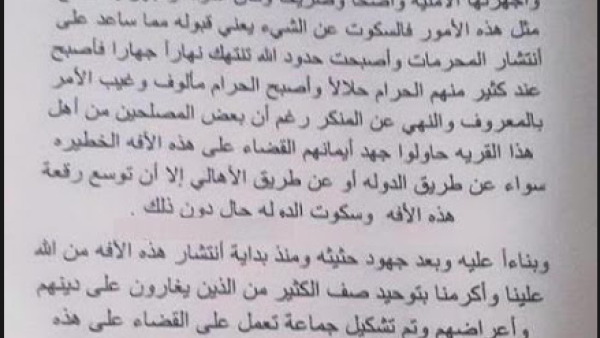 وأجهزتها الأمنية واضحاً
مثل هذه الأمور فالسكوت عن الشيء يعني قبوله مما ساعد على
أنتشار المحرمات وأصبحت حدود الله تنتهك نهاراً جهارا فأصبح
عند كثير منهم الحرام حلالاً وأصبح الحرام مألوف وغيب الأمر
بالمعروف والنهي عن المنكر رغم أن بعض المصلحين من أهل
هذا القريه حاولوا جهد أيمانهم القضاء على هذه الأفه الخطيره
سواء عن طريق الدوله أو عن طريق الأهالي إلا أن توسع رقعة
هذه الأفه وسكوت الدوله حال دون ذلك .
وبناءاً عليه وبعد جهود حثيثه ومنذ بداية أنتشار هذه الأفه من الله
علينا وأكرمنا بتوحيد صف الكثير من الذين يغارون على دينهم
وأعراضهم وتم تشكيل جماعة تعمل على القضاء على هذه